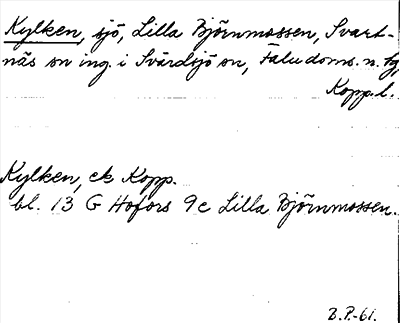 Kylken, sjö, Lilla Björnmossen, Svart-
näs sn ing. i Svärdsjö sn, Falu doms. n. tg,
Kopp.l.
Kylken, ek Kopp.
bl. 13 G Hofors 9c Lilla Björnmossen.
B.P.-61.